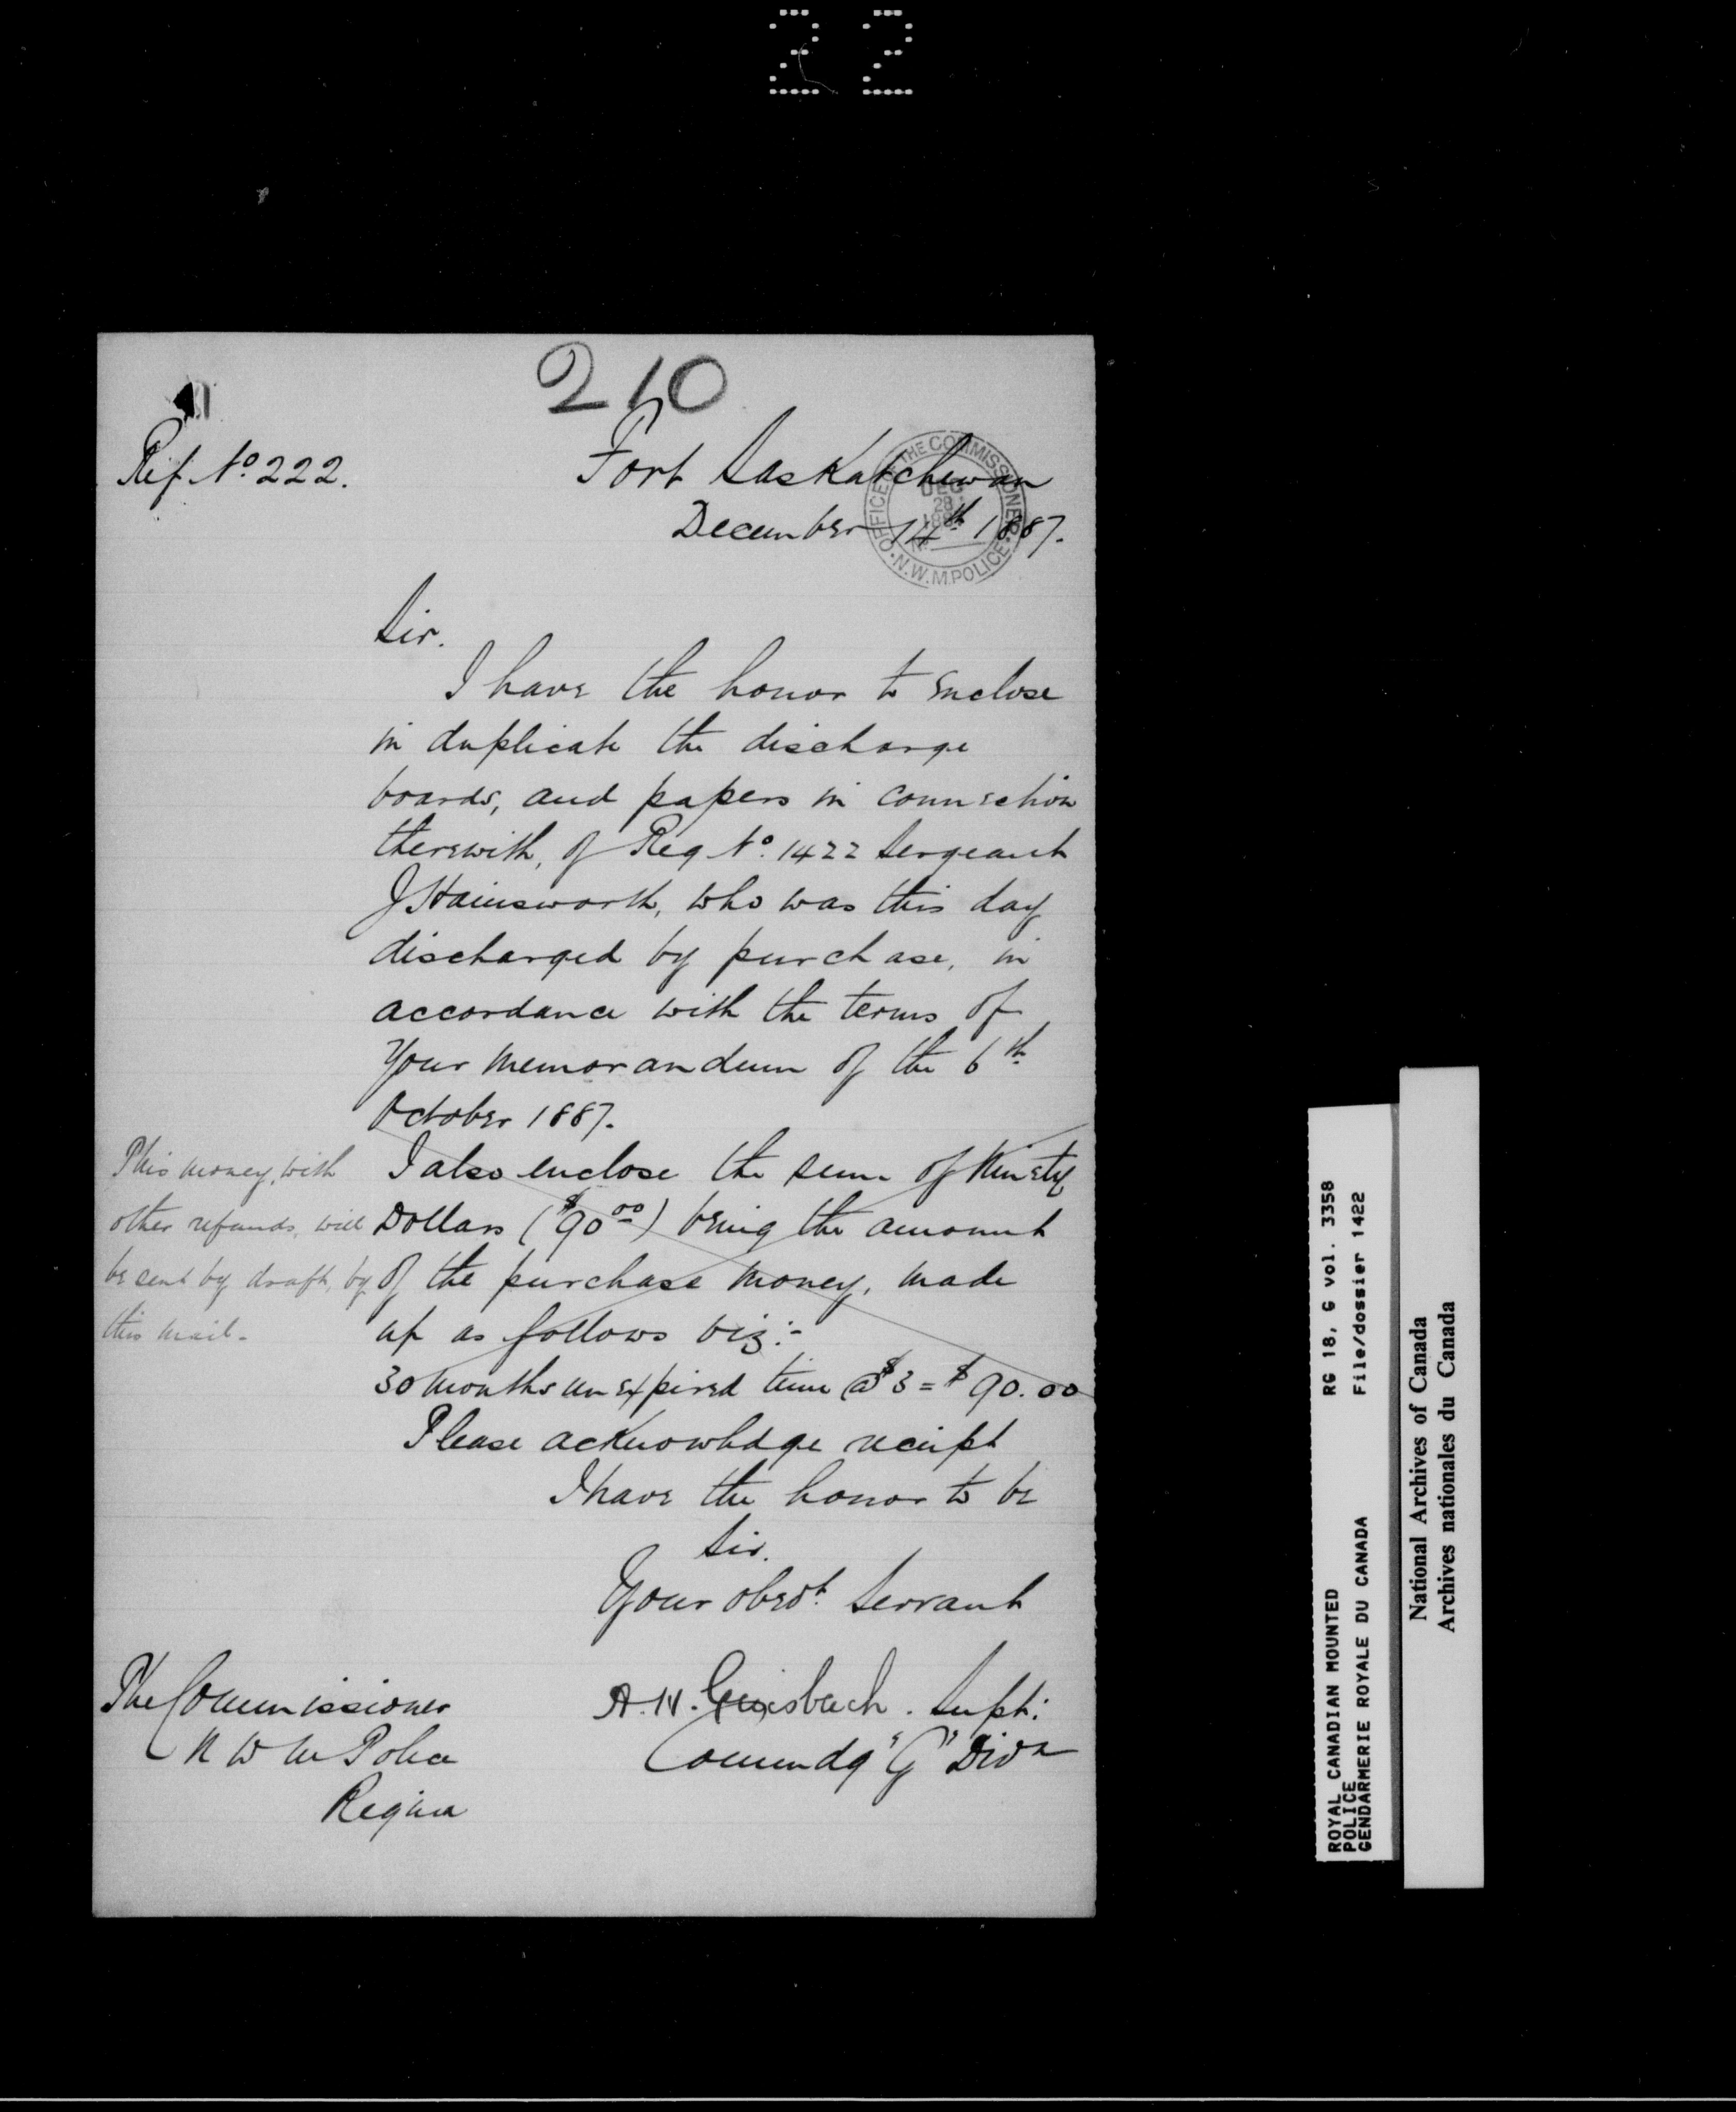 22
210
Ref. No. 222.
Fort Saskatchewan
December 14th 1887.
OFFICE OF THE COMMISSIONER
DEC
28
N.W.M. POLICE
Sir.
I have the honor to enclose
in duplicate the discharge
boards, and papers in connection
therewith, of Reg No. 1422 Sergeant
J Hainsworth, who was this day
discharged by purchase, in
accordance with the terms of
Your memorandum of the 6th
October 1887.
I also enclose the sum of Ninety
Dollars ($90.00) being the amount
of the purchase money, made
up as follows viz:-
30 months unexpired time @ $3 = $90.00
This money, with
other refunds, will
be sent by draft, by
this mail-
Please acknowledge receipt
I have the honor to be
Sir.
Your obedt. Servant
A. H. Griesbach. Supt:
Commdg "G" Divn
The Commissioner
N W M Police
Regina
ROYAL CANADIAN MOUNTED
POLICE
GENDARMERIE ROYALE DU CANADA
RG 18, G vol. 3358
File/dossier 1422
National Archives of Canada
Archives nationales du Canada